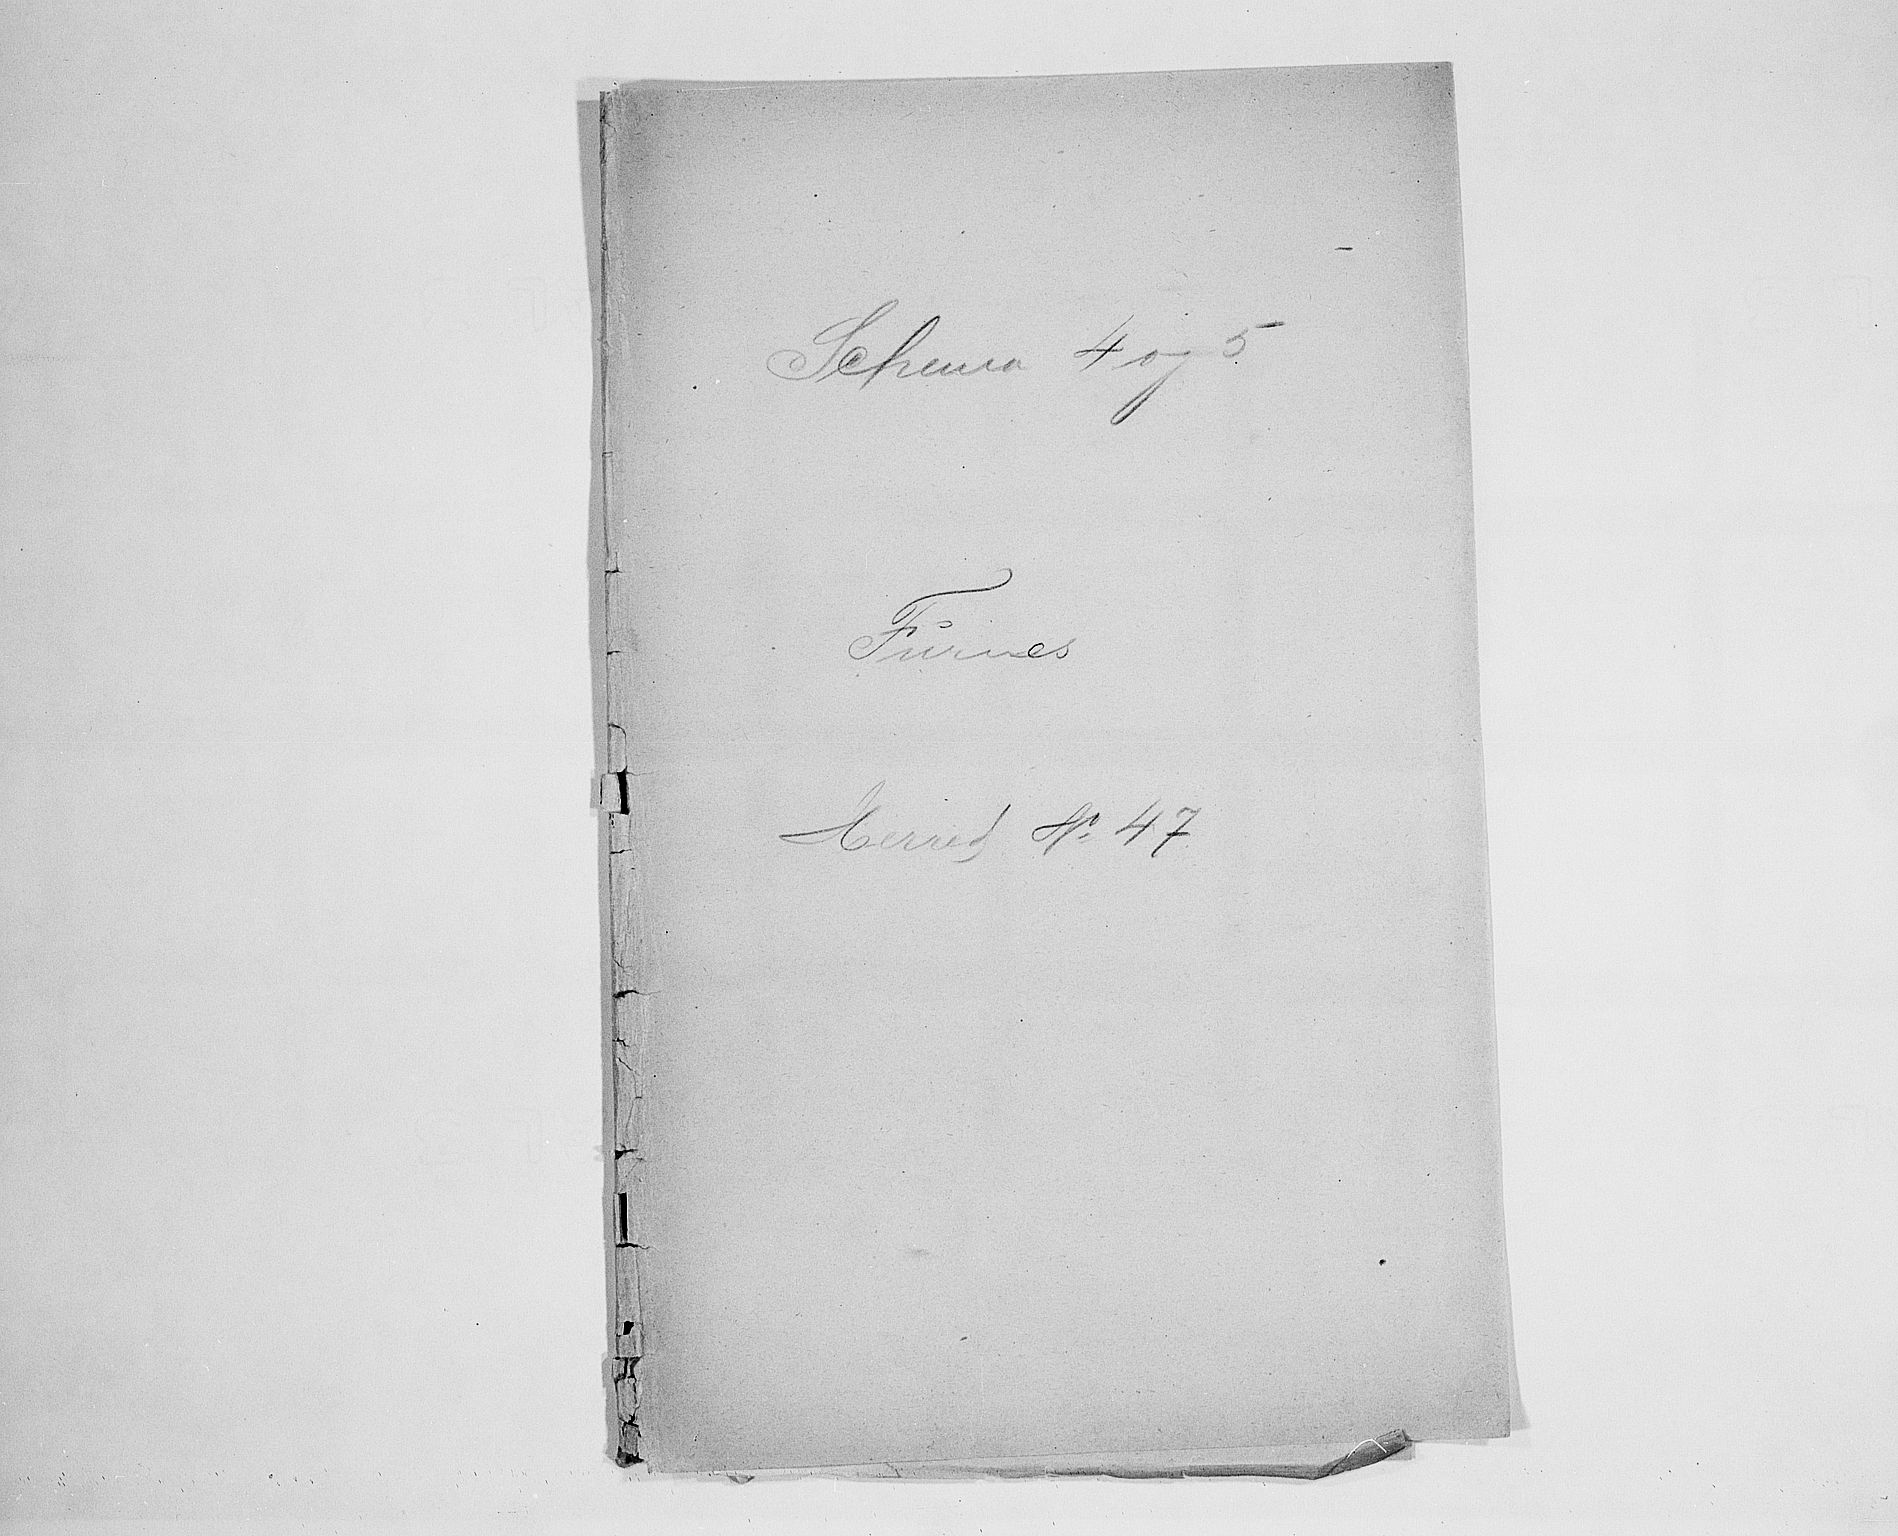 Schema 4 og 5
Furnes
Herred Nº 47